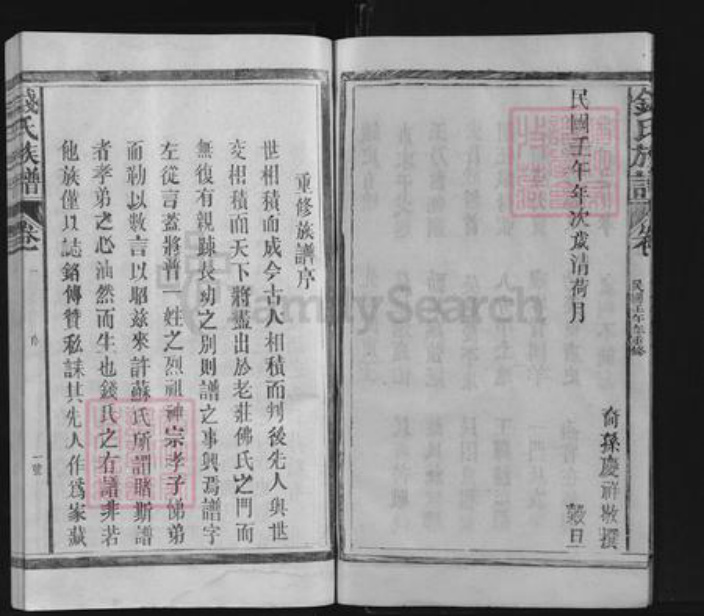 錢氏族譜
卷
民國壬午年重修
民國壬午年次歲清荷月
裔孫慶祥敬撰
穀旦
重修族譜序
世相積而成今古人相積而判後先人與世
交相積而天下將盡出於老莊佛氏之門而
無復有親踈長幼之別則譜之事興焉譜字
左從言蓋將普一姓之烈祖神宗孝子悌弟
而勒以數言以昭玆來許蘇氏所謂睹斯譜
者孝弟之心油然而生也錢氏之有譜非若
他族僅以誌銘傳贊私誄其先人作爲家藏
錢氏族譜
卷一
序
一號
FamilySearch